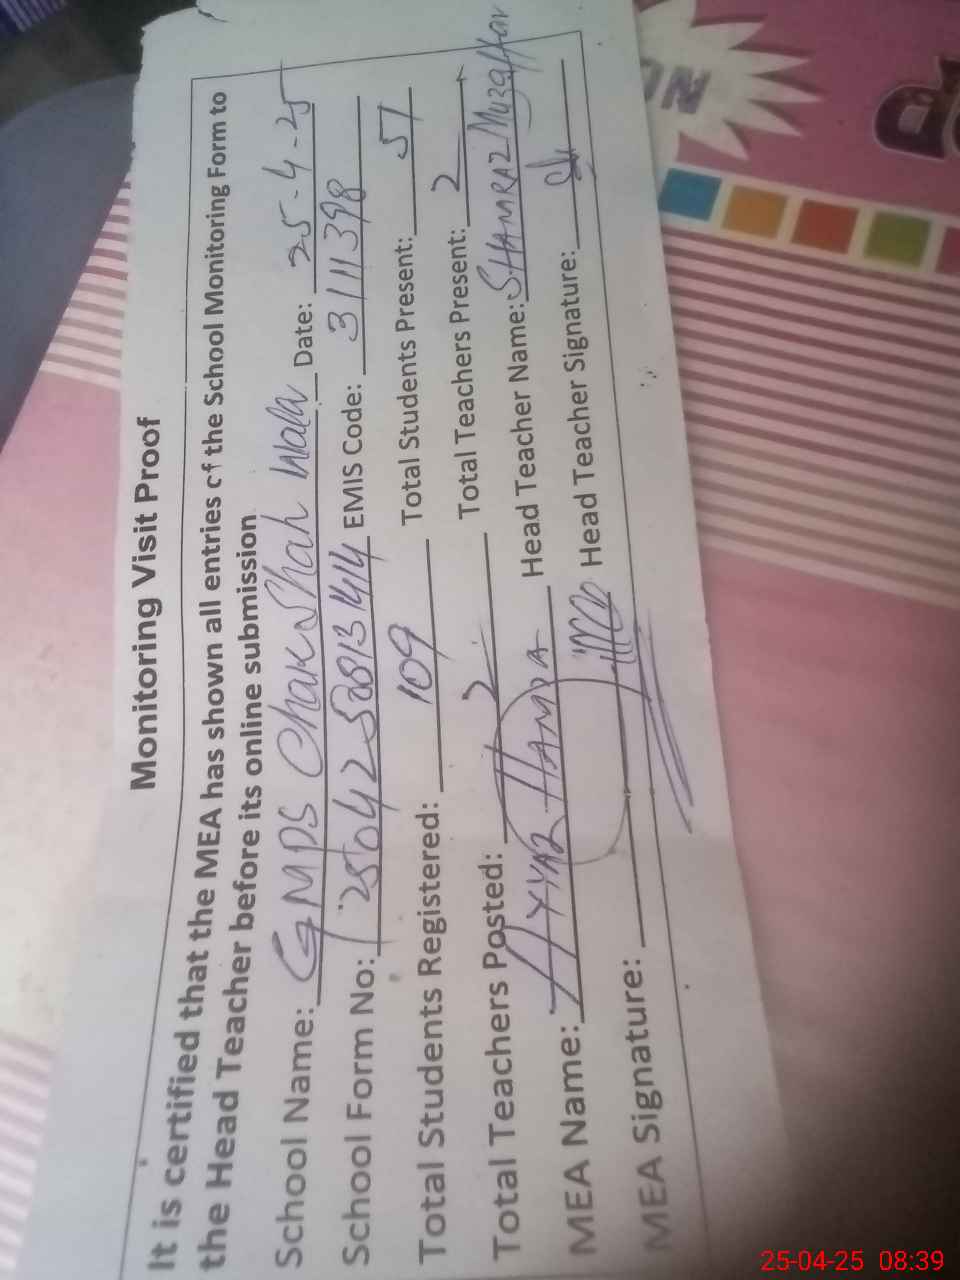 Monitoring Visit Proof
It is certified that the MEA has shown all entries of the School Monitoring Form to
the Head Teacher before its online submission
School Name: GMPS Chak Shah Wala Date: 25-4-25
School Form No: 25042588131414 EMIS Code: 31111398
Total Students Registered: 109 Total Students Present: 57
Total Teachers Posted: 2 Total Teachers Present: 2
MEA Name: Head Teacher Name: SHAMRAZ Muzaffar
MEA Signature: Head Teacher Signature:
ON
25-04-25 08:39